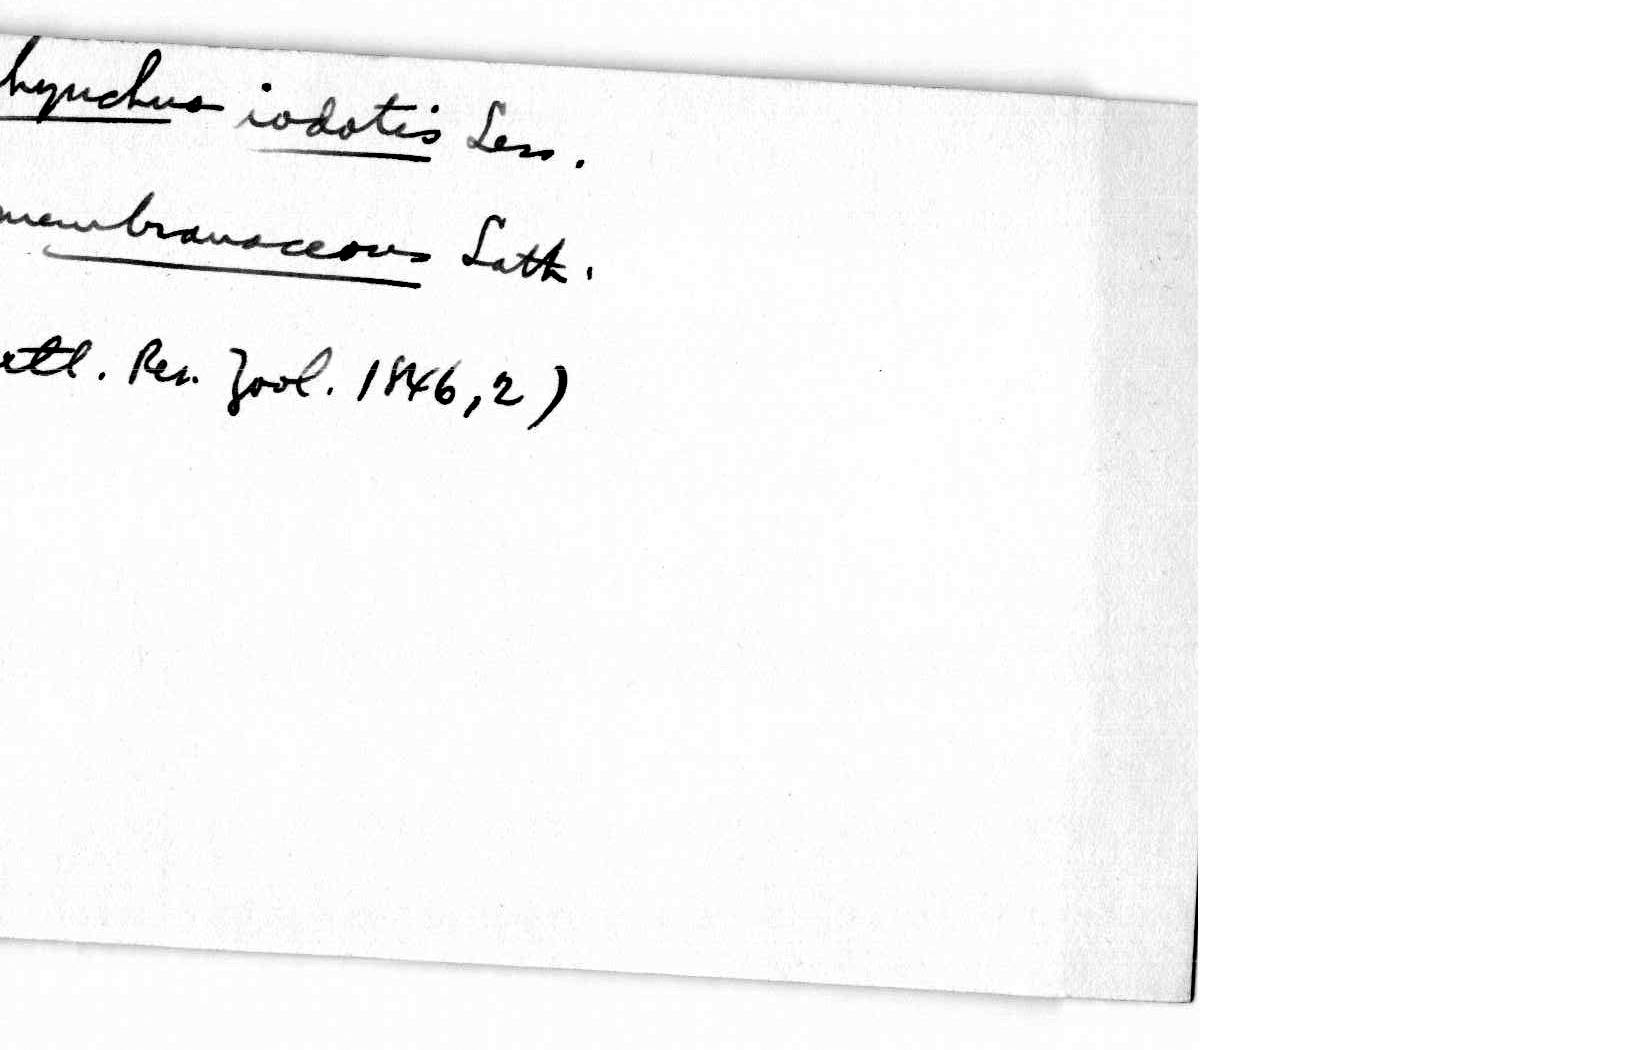 hynchus iodotis Less.
membranaceous Lath.
ettl. Rev. Zool. 1846, 2)